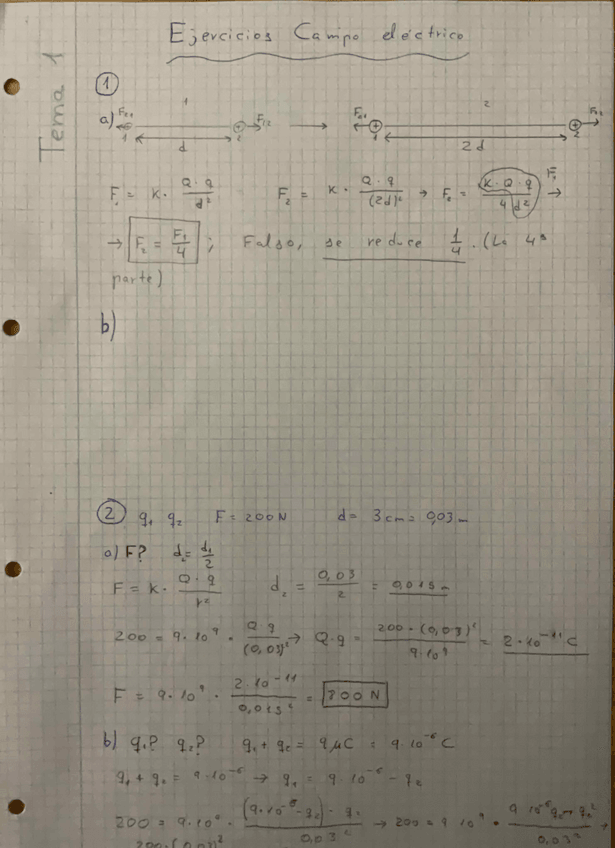 Ejercicios Campo eléctrico
Tema 1
1
a) F₂₁ 1 d 2 F₁₂ 1 → F₂₁ 1 2d 2 F₁₂ 2
F₁ = K · Q·q / d² F₂ = K · Q·q / (2d)² → F₂ = K·Q·q / 4d² F₁ →
→ F₂ = F₁/4 ; Falso, se reduce 1/4. (La 4ª
parte)
b)
2 q₁ q₂ F = 200 N d = 3 cm = 0,03 m
a) F? d₂ = d₁/2
F = K · Q·q / r² d₂ = 0,03 / 2 = 0,015 m
200 = 9·10⁹ · Q q / (0,03)² → Q·q = 200·(0,03)² / 9·10⁹ = 2·10⁻¹¹ C
F = 9·10⁹ · 2·10⁻¹¹ / 0,015² = 800 N
b) q₁? q₂? q₁ + q₂ = 9 μC = 9·10⁻⁶ C
q₁ + q₂ = 9·10⁻⁶ → q₁ = 9·10⁻⁶ - q₂
200 = 9·10⁹ · (9·10⁻⁶ - q₂) · q₂ / 0,03² → 200 = 9·10⁹ · 9·10⁻⁶ q₂ - q₂² / 0,03² →
200·(0,03)²